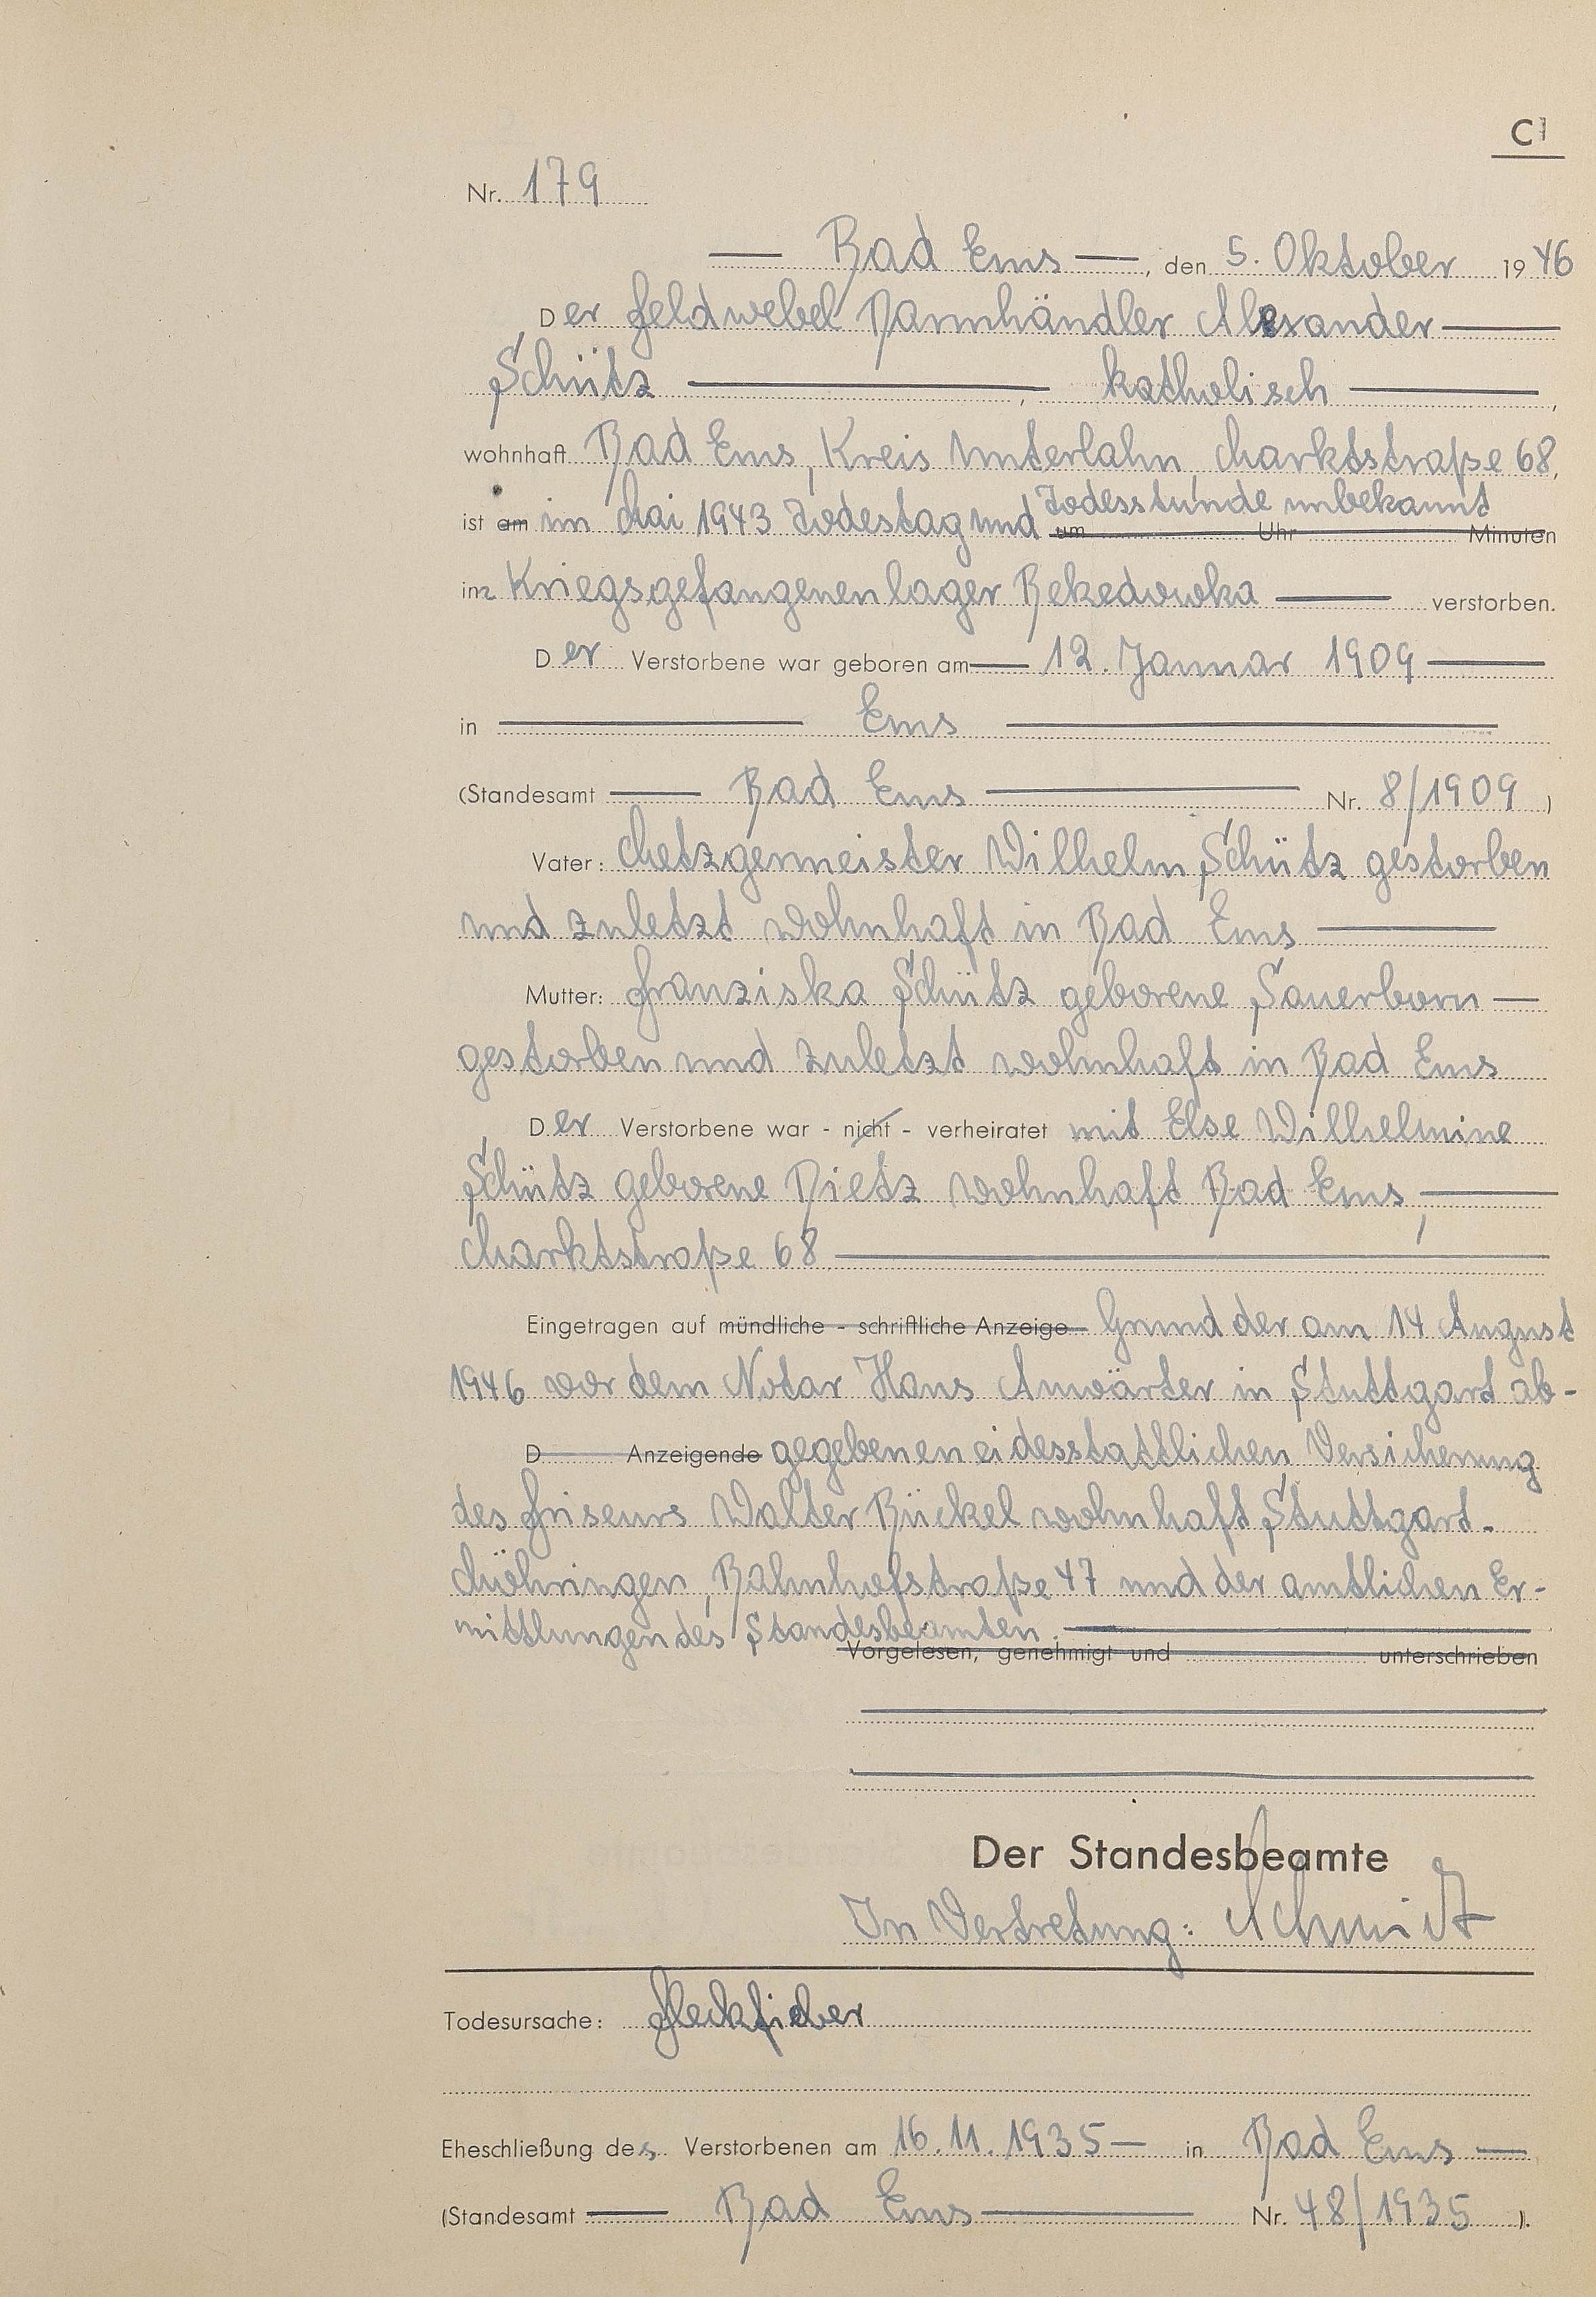 C
Nr. 179
Bad Ems, den 5. Oktober 1946
Der Feldwebel Darmhändler Alexander
Schütz, katholisch,
wohnhaft Bad Ems, Kreis Unterlahn, Marktstraße 68,
ist am im Mai 1943 Todestag und Todesstunde unbekannt um Uhr Minuten
im Kriegsgefangenenlager Bekedowka verstorben.
Der Verstorbene war geboren am 12. Januar 1909
in Ems
(Standesamt Bad Ems Nr. 8/1909)
Vater: Metzgermeister Wilhelm Schütz gestorben
und zuletzt wohnhaft in Bad Ems
Mutter: Franziska Schütz geborene Sauerborn
gestorben und zuletzt wohnhaft in Bad Ems
Der Verstorbene war - nicht - verheiratet mit Else Wilhelmine
Schütz geborene Dietz wohnhaft Bad Ems,
Marktstraße 68.
Eingetragen auf mündliche - schriftliche Anzeige Grund der am 14 August
1946 vor dem Notar Hans Anwärter in Stuttgart ab-
D Anzeigende gegebenen eidesstattlichen Versicherung
des Friseurs Walter Bückel wohnhaft Stuttgart-
Möhringen, Bahnhofstraße 47 und der amtlichen Er-
mittlungen des Standesbeamten.
Vorgelesen, genehmigt und unterschrieben
Der Standesbeamte
In Vertretung: Schmidt
Todesursache: Fleckfieber
Eheschließung des Verstorbenen am 16.11.1935 in Bad Ems
(Standesamt Bad Ems Nr. 48/1935).